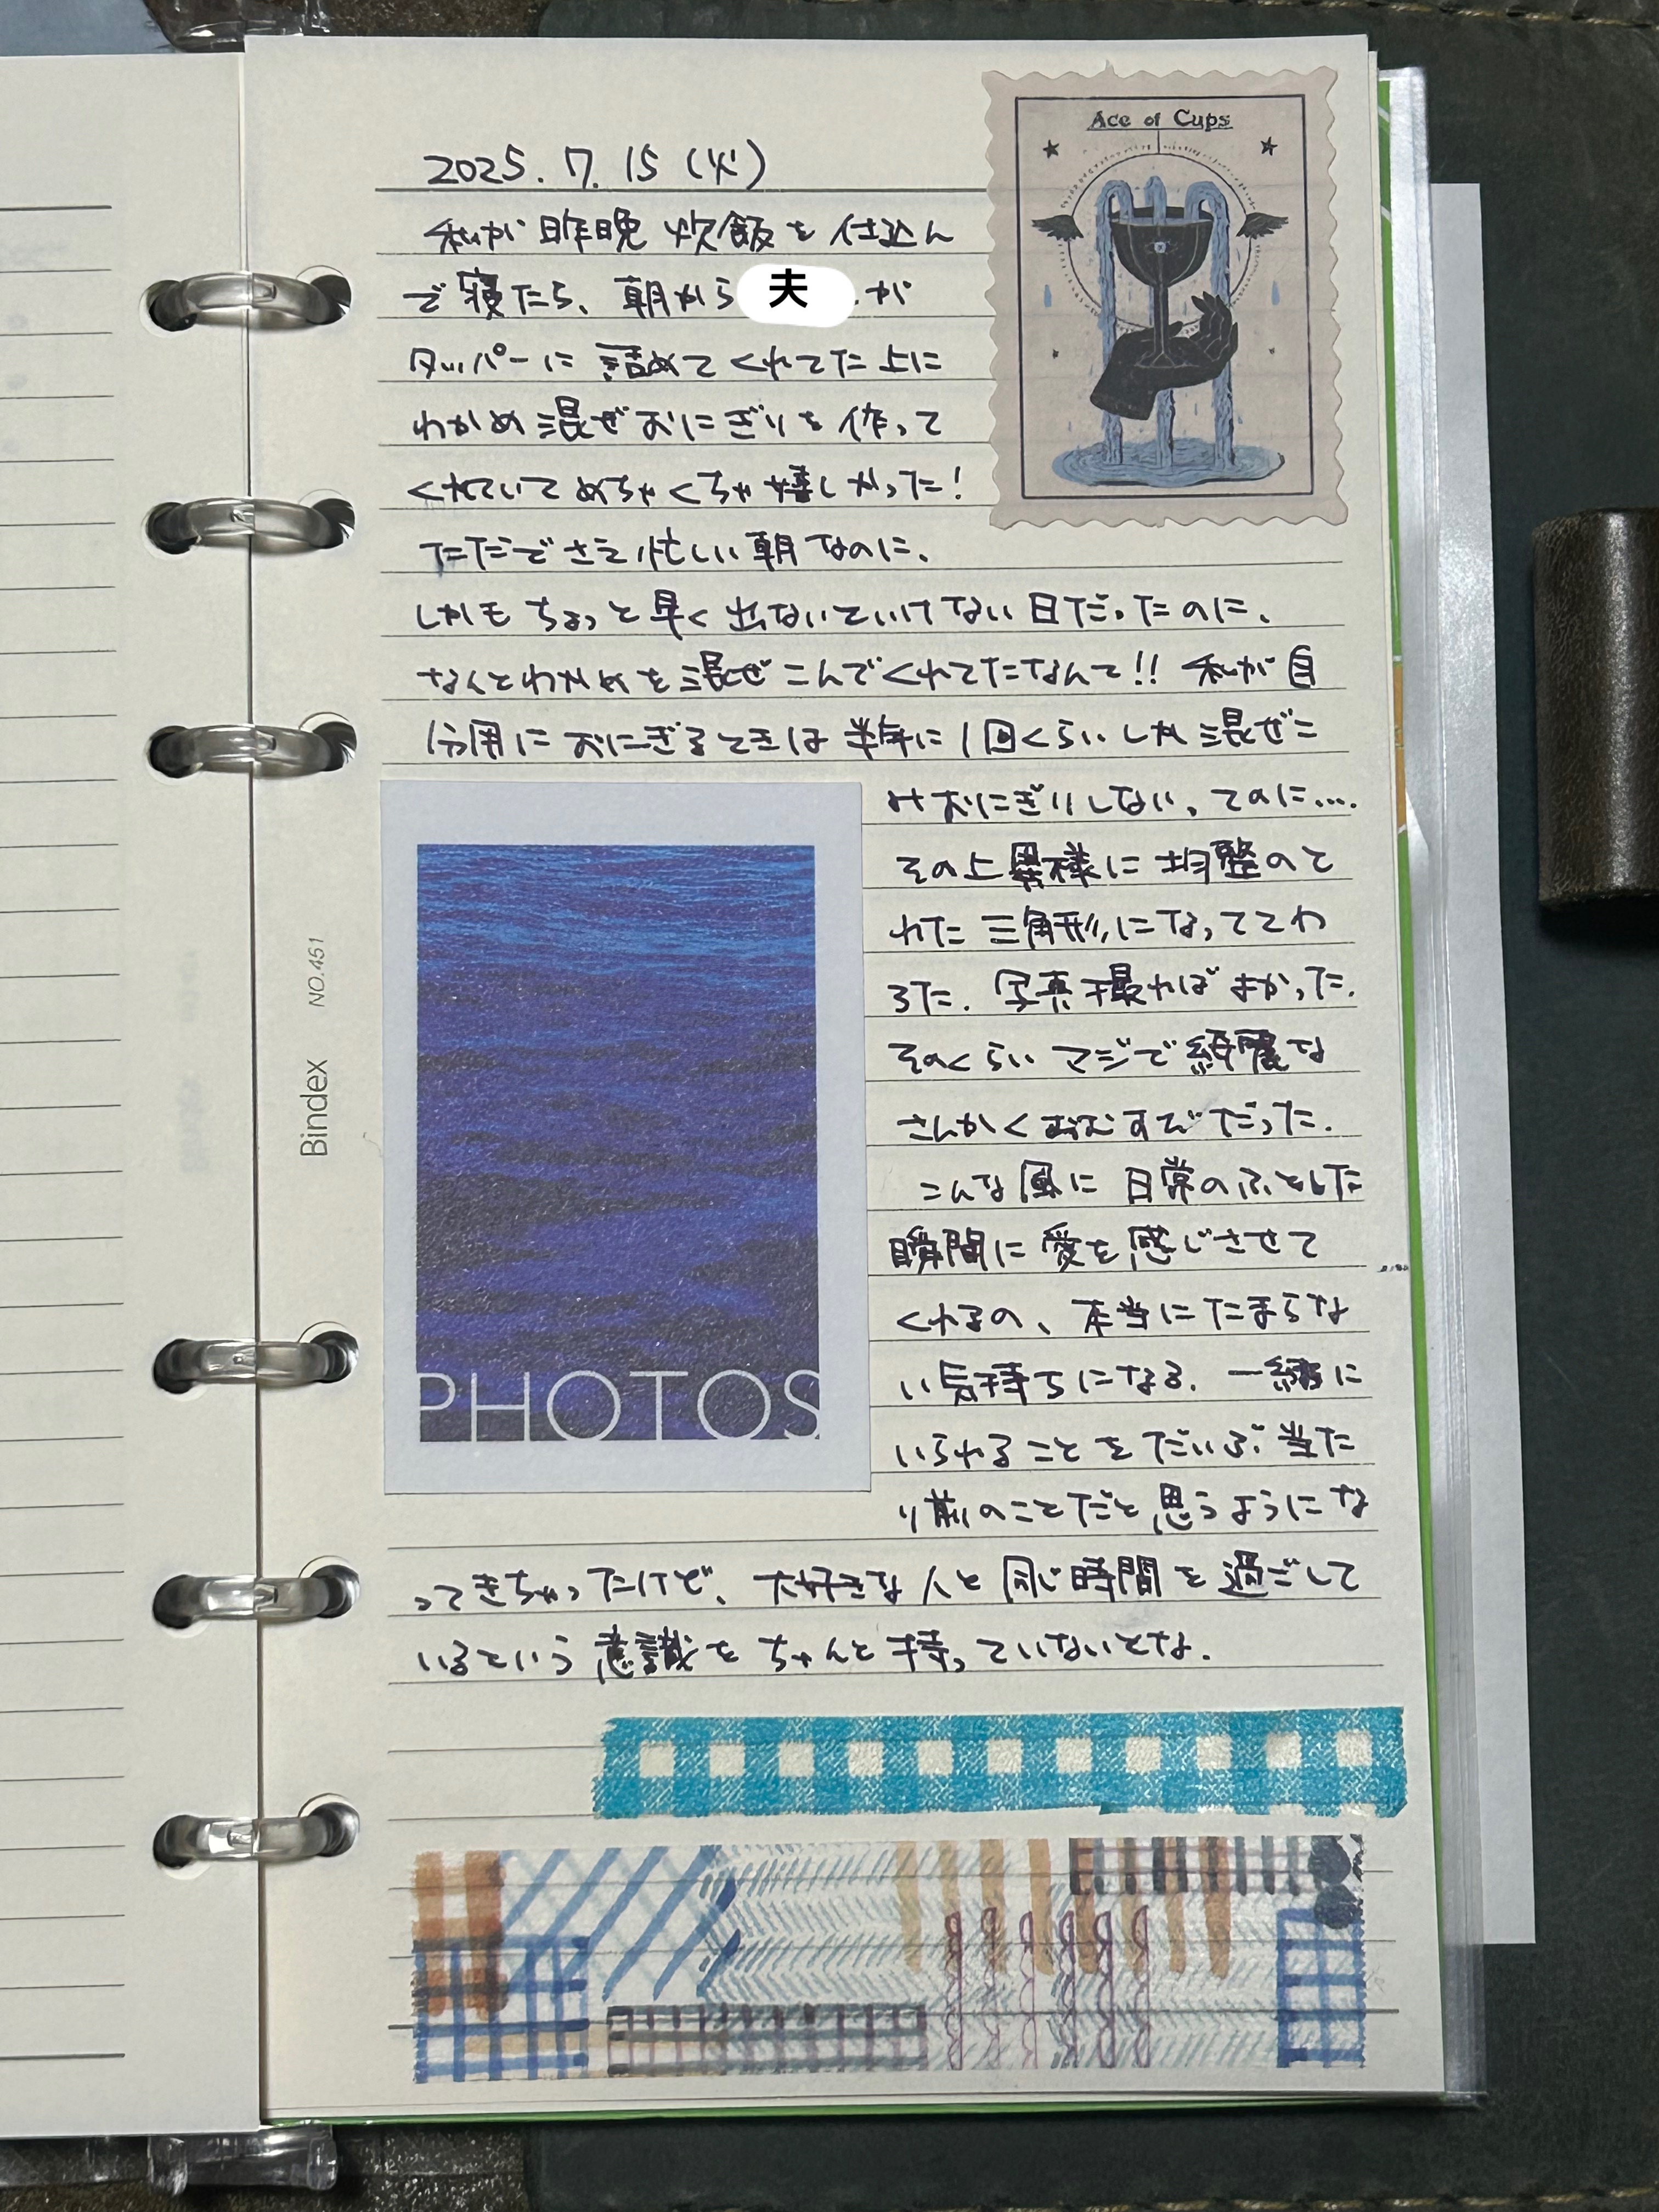 Ace of Cups
2025. 7. 15 (火)
私が昨晩炊飯を仕込ん
で寝たら、朝から夫が
タッパーに詰めてくれてた上に
わかめ混ぜおにぎりを作って
くれていてめちゃくちゃ嬉しかった!
ただでさえ忙しい朝なのに、
しかもちょっと早く出ないといけない日だったのに、
なんとわかめを混ぜこんでくれてたなんて!! 私が自
分用におにぎるときは半年に1回くらいしか混ぜこ
みおにぎりしない。てのに....
その上異様に均整のと
れた三角形になっててわ
ろた. 写真撮ればよかった.
そのくらいマジで綺麗な
さんかくおむすびだった.
こんな風に日常のふとした
瞬間に愛を感じさせて
くれるの、本当にたまらな
い気持ちになる. 一緒に
いられることをだいぶ当た
り前のことだと思うようにな
ってきちゃったけど、大好きな人と同じ時間を過ごして
いるという意識をちゃんと持っていないとな.
PHOTOS
Bindex NO.451